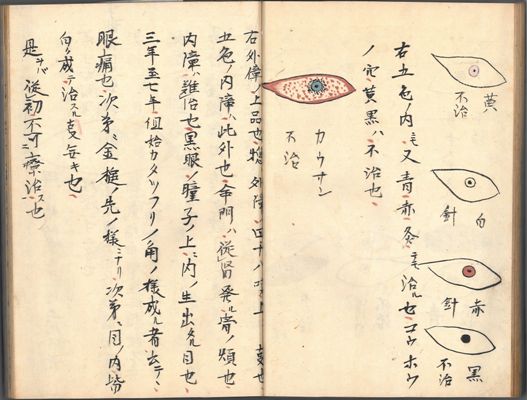 黄
不治
白
針
赤
針
黒
不治
右五色ノ内ニモ又青赤灸ニモ治ル也コウホウ
ノ穴黄黒ハ不治也
カウサン
不治
右外障ノ上品也惣外障
五色ノ内障ハ此外也命門ハ従腎発ル骨ノ類也
内障ハ難治也黒眼ノ瞳子ノ上ニ内ノ生出タル目也
三年至七年但始カタツフリノ角ノ様成ル者去テ
眼上痛也次第ニ金槌ノ先ノ様ニナリ次第ニ目ノ内皆
白ク成テ治スル支無キ也
是ヲハ従初不可療治ス也